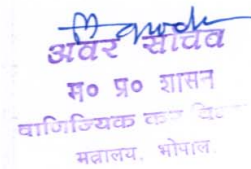 अवर सचिव
म० प्र० शासन
वाणिज्यिक कर
मंत्रालय, भोपाल